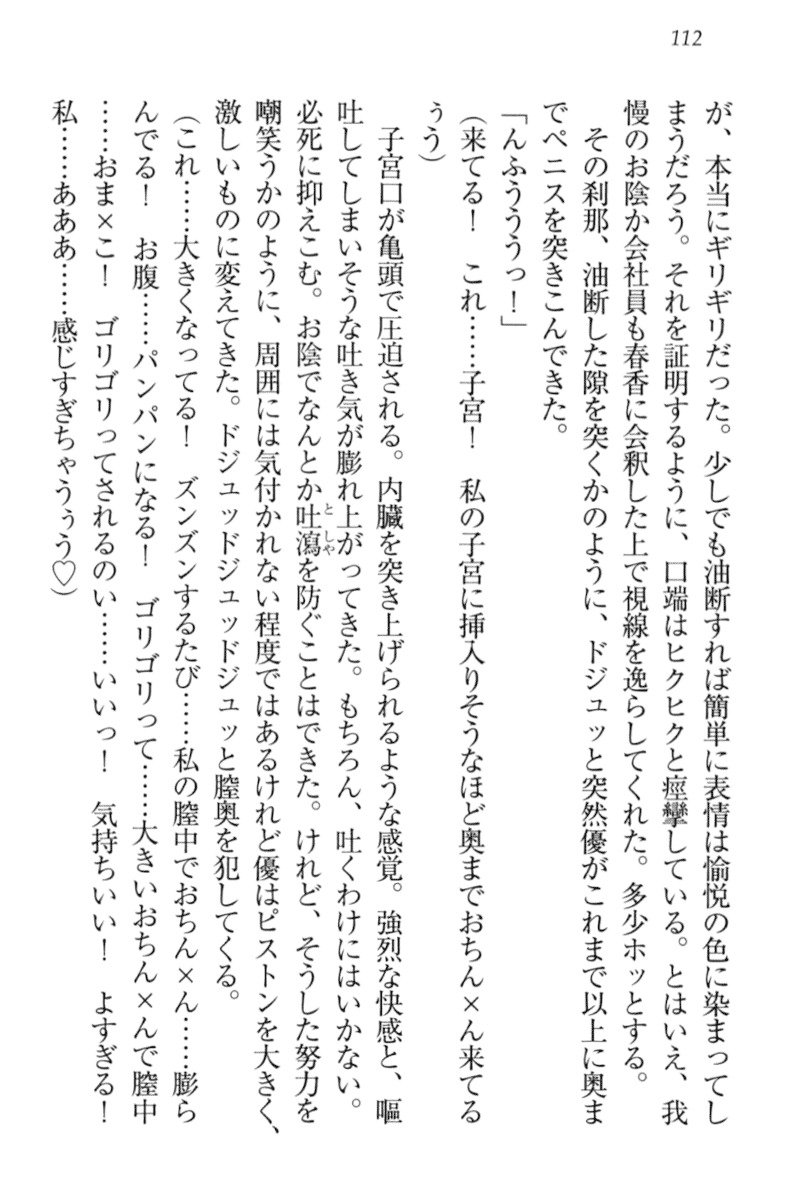 112
が、本当にギリギリだった。少しでも油断すれば簡単に表情は愉悦の色に染まってし
まうだろう。それを証明するように、口端はヒクヒクと痙攣している。とはいえ、我
慢のお陰か会社員も春香に会釈した上で視線を逸らしてくれた。多少ホッとする。
その刹那、油断した隙を突くかのように、ドジュッと突然優がこれまで以上に奥ま
でペニスを突きこんできた。
「んふうううっ！」
（来てる！　これ……子宮！　私の子宮に挿入りそうなほど奥までおちん×ん来てる
ぅう）
子宮口が亀頭で圧迫される。内臓を突き上げられるような感覚。強烈な快感と、嘔
吐してしまいそうな吐き気が膨れ上がってきた。もちろん、吐くわけにはいかない。
必死に抑えこむ。お陰でなんとか吐瀉を防ぐことはできた。けれど、そうした努力を
嘲笑うかのように、周囲には気付かれない程度ではあるけれど優はピストンを大きく、
激しいものに変えてきた。ドジュッドジュッドジュッと膣奥を犯してくる。
（これ……大きくなってる！　ズンズンするたび……私の膣中でおちん×ん……膨ら
んでる！　お腹……パンパンになる！　ゴリゴリって……大きいおちん×んで膣中
……おま×こ！　ゴリゴリってされるのい……いいっ！　気持ちいい！　よすぎる！
私……あああ……感じすぎちゃうぅう♡）